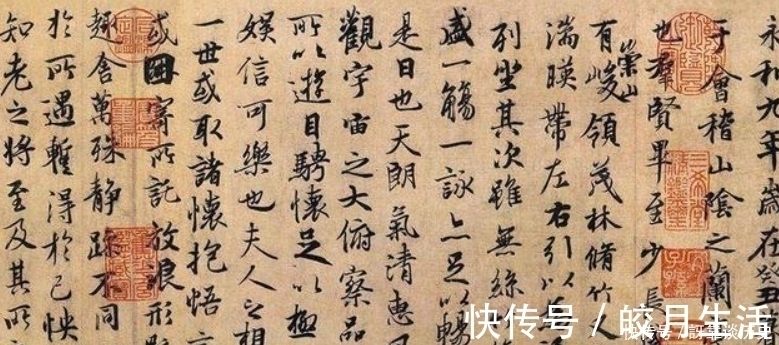 永和九年歲在癸丑
于會稽山陰之蘭
也羣賢畢至少長
有崇山峻領茂林脩竹
湍暎帶左右引以
列坐其次雖無絲
盛一觴一詠亦足以暢
是日也天朗氣清惠
觀宇宙之大俯察品
所以遊目騁懷足以極
娛信可樂也夫人之相
一世或取諸懷抱悟
或因寄所託放浪形
趣舍萬殊靜躁不同
於所遇蹔得於己怏
知老之將至及其所
三希堂精鑑璽
快传号 / 皎月生活
快传号